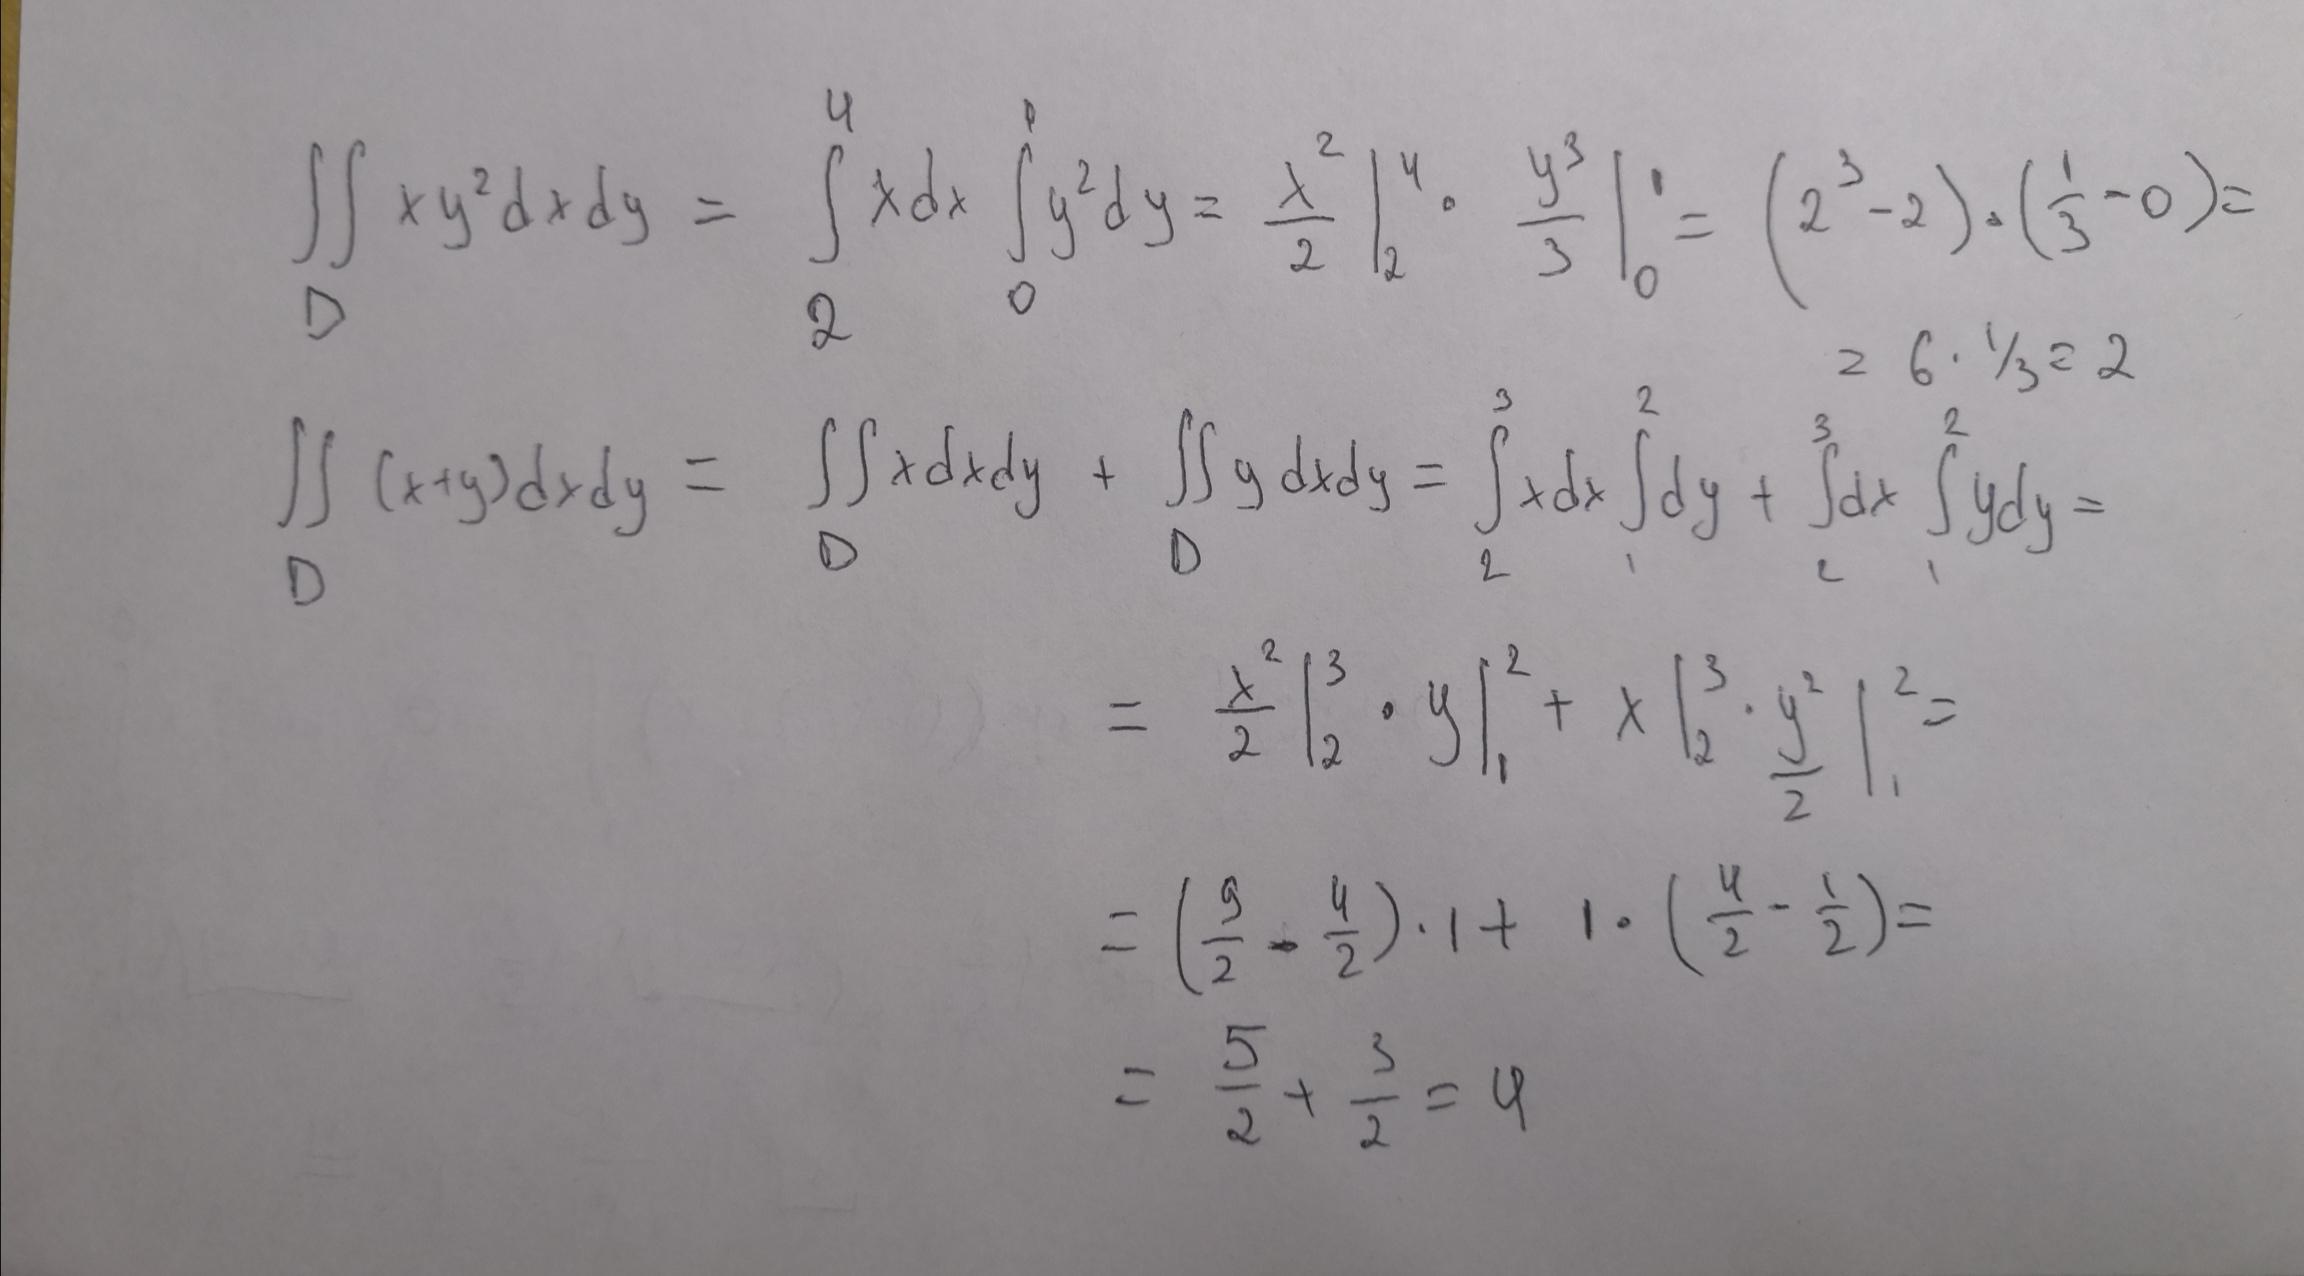 ∬_D xy² dx dy = ∫_2^4 x dx ∫_0^1 y² dy = x²/2 |_2^4 · y³/3 |_0^1 = (2³ - 2) · (1/3 - 0) =
= 6 · 1/3 = 2
∬_D (x+y) dx dy = ∬_D x dx dy + ∬_D y dx dy = ∫_2^3 x dx ∫_1^2 dy + ∫_2^3 dx ∫_1^2 y dy =
= x²/2 |_2^3 · y |_1^2 + x |_2^3 · y²/2 |_1^2 =
= (9/2 - 4/2) · 1 + 1 · (4/2 - 1/2) =
= 5/2 + 3/2 = 4